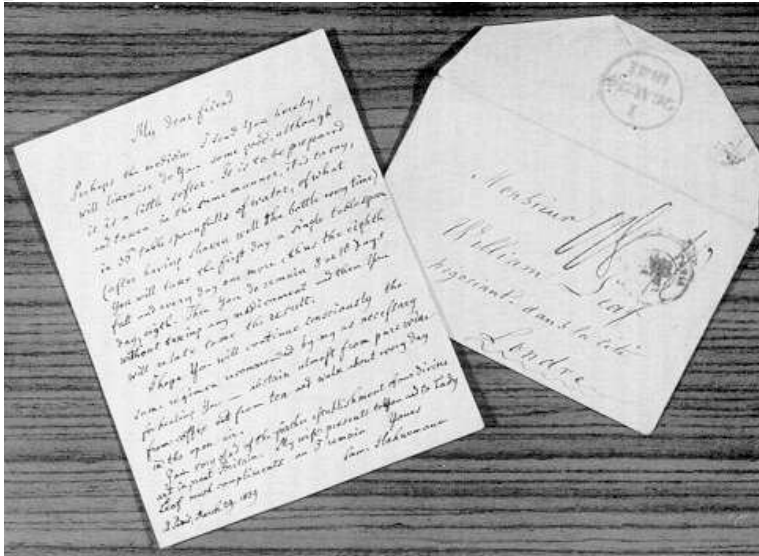 My dear friend
Perhaps the medicine I send You hereby,
will likewise do You some good, although
it is a little softer. It is to be prepared
and taken in the same manner, that is to say,
in 35 tablespoonfulls of water, of what
(after having shaken well the bottle every time)
You will take the first day a single tablespoon
full and every day one more, thus the eighth
day, eight. Then You do remain 8 or 10 days
without taking any medicament and then You
will relate to me the result.
I hope You will continue consciously the
same regimen recommended by my as necessary
for healing You — abstain utmost from pure wine
from coffee and from tea and walk about every day
in the open air.
I am very glad of the farther establishment of our divine
art in great Britain. My wife presents to You and to Lady
Leaf much compliments and I remain Yours
Sam. Hahnemann
Paris, March 29. 1839
Monsieur
William Leaf
negociant dans la cité
Londre